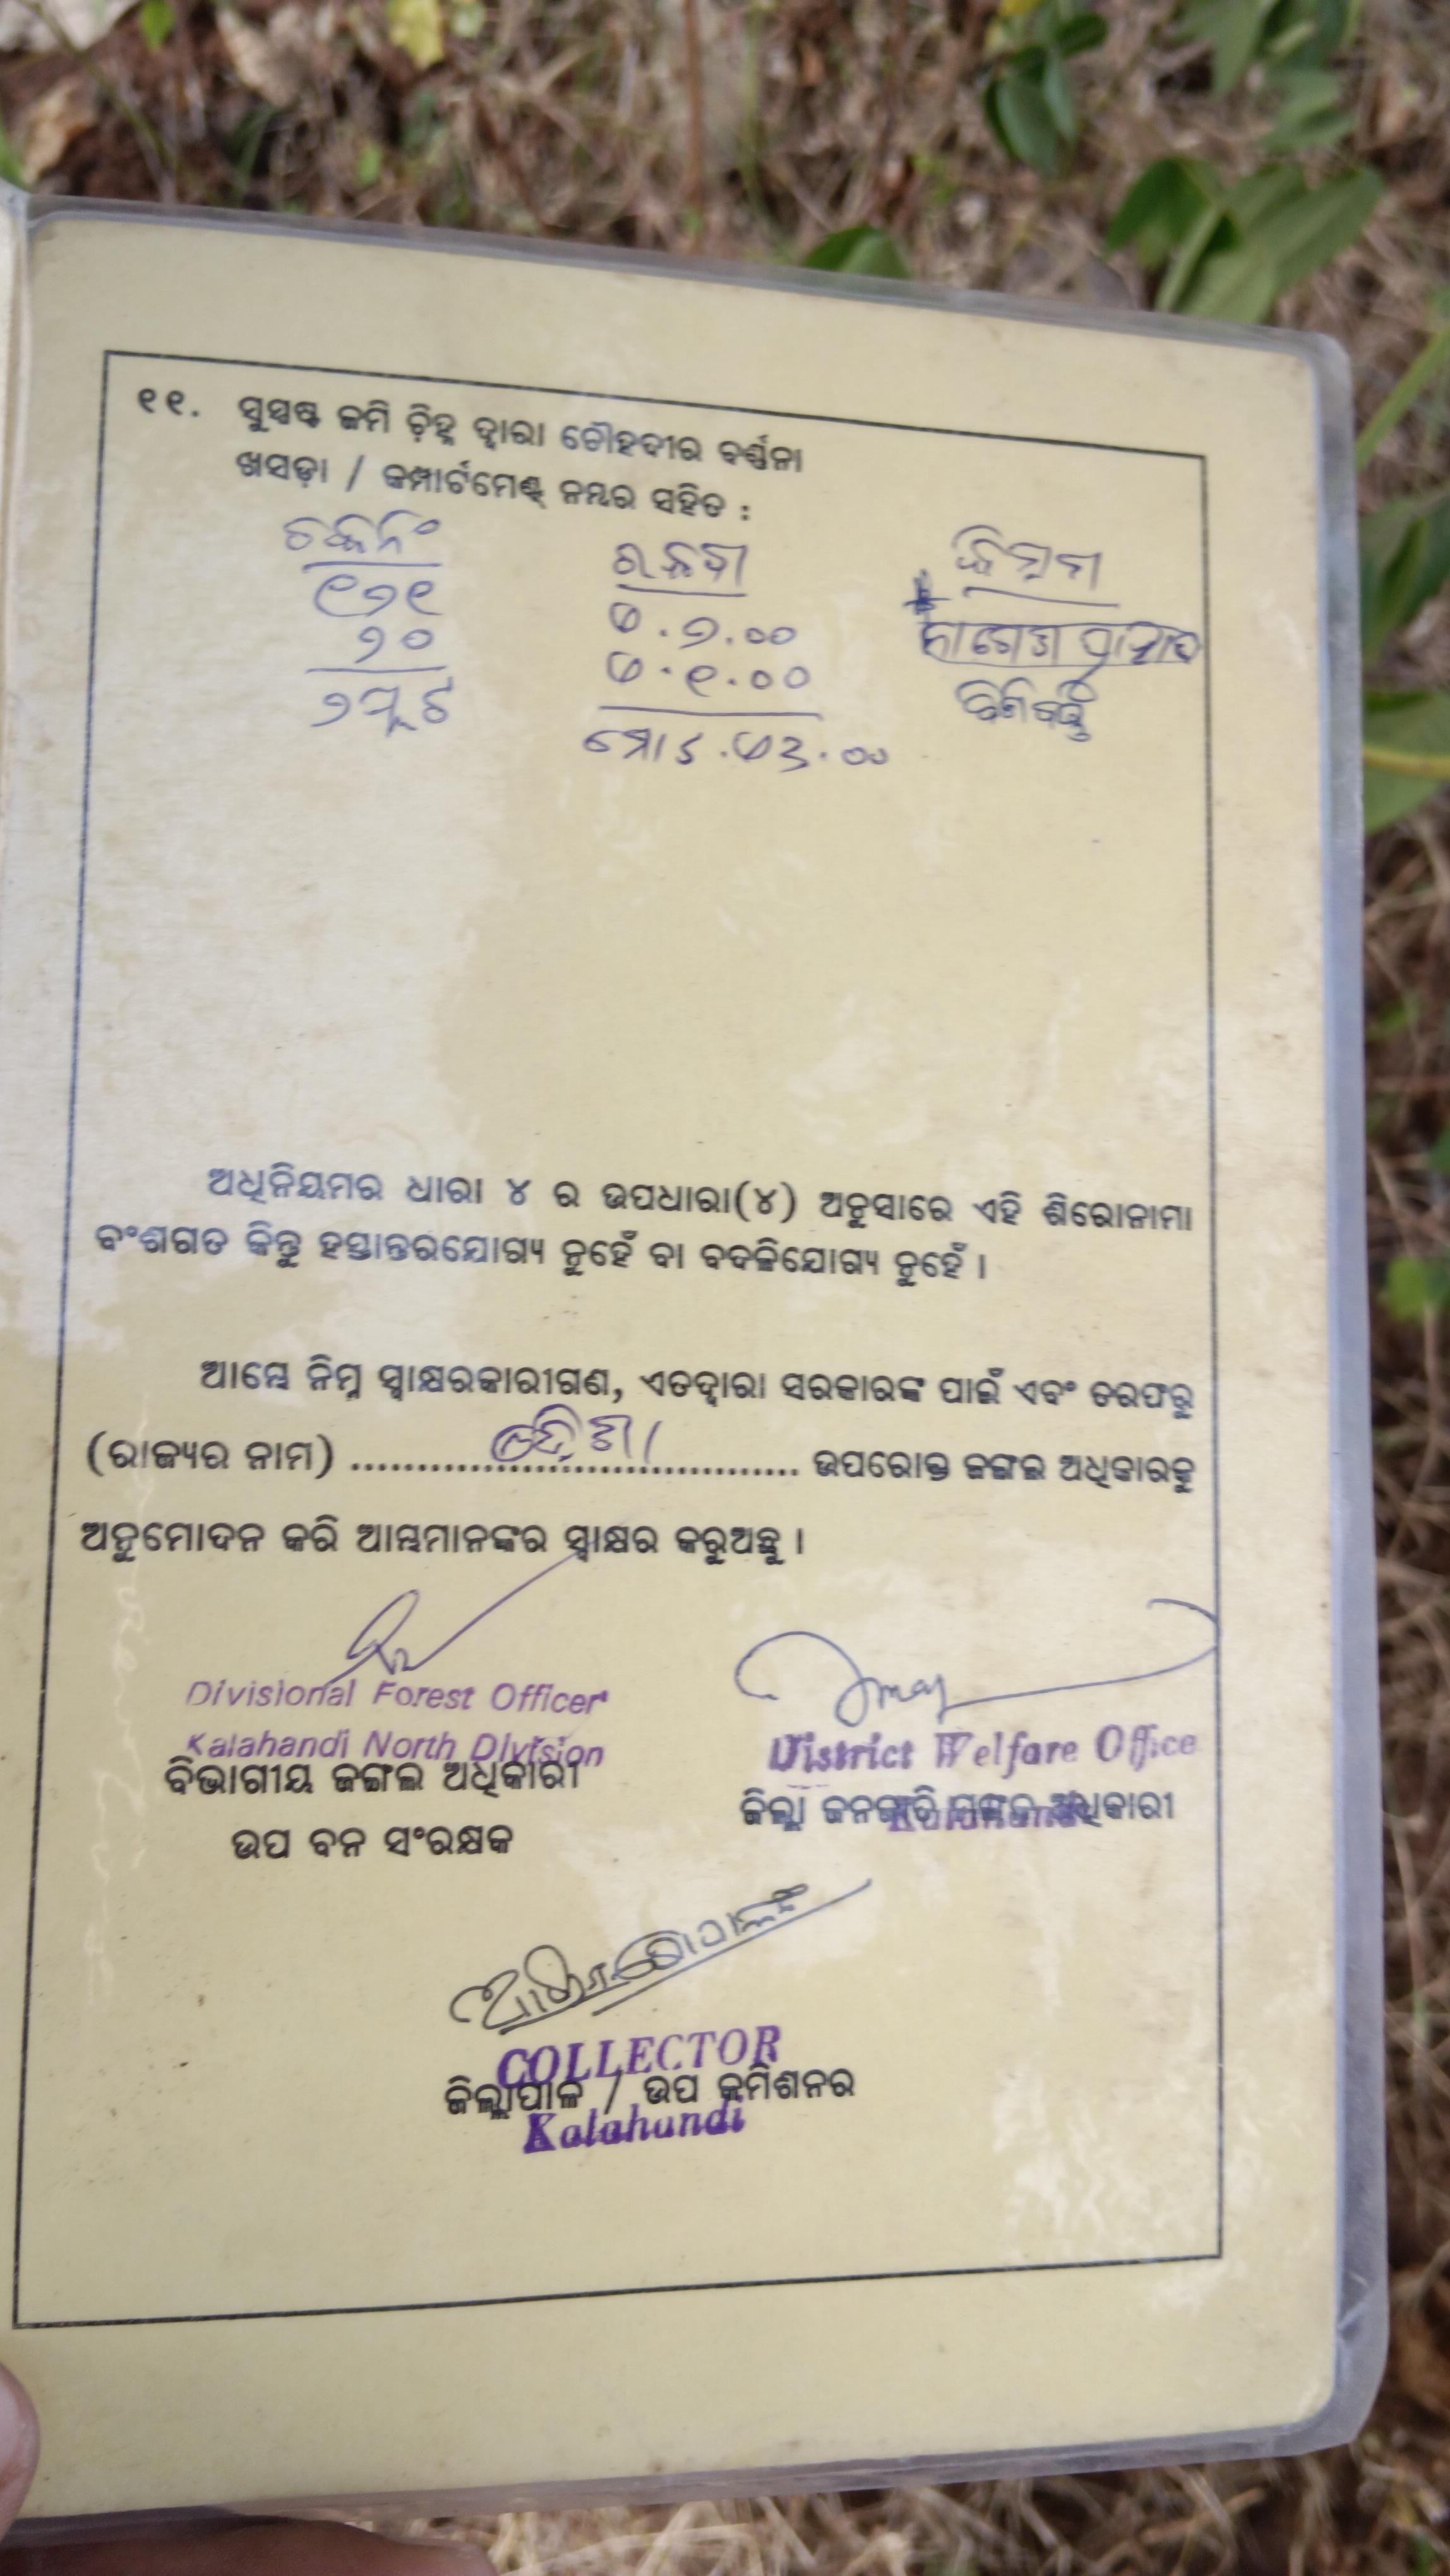 ୧୧. ସୁସ୍ପଷ୍ଟ ଜମି ଚିହ୍ନ ଦ୍ୱାରା ଚୌହଦୀର ବର୍ଣ୍ଣନା
ଖସଡ଼ା / କମ୍ପାର୍ଟମେଣ୍ଟ୍ ନମ୍ବର ସହିତ :
ରକବା
୧୨୧
୨୦
୨ ପ୍ଲଟ
ଅଧିନିୟମର ଧାରା ୪ ର ଉପଧାରା(୪) ଅନୁସାରେ ଏହି ଶିରୋନାମା
ବଂଶଗତ କିନ୍ତୁ ହସ୍ତାନ୍ତରଯୋଗ୍ୟ ନୁହେଁ ବା ବଦଳିଯୋଗ୍ୟ ନୁହେଁ ।
ଆମ୍ଭେ ନିମ୍ନ ସ୍ୱାକ୍ଷରକାରୀଗଣ, ଏତଦ୍ୱାରା ସରକାରଙ୍କ ପାଇଁ ଏବଂ ତରଫରୁ
(ରାଜ୍ୟର ନାମ) ଓଡ଼ିଶା ଉପରୋକ୍ତ ଜଙ୍ଗଲ ଅଧିକାରକୁ
ଅନୁମୋଦନ କରି ଆମ୍ଭମାନଙ୍କର ସ୍ୱାକ୍ଷର କରୁଅଛୁ ।
Divisional Forest Officer
Kalahandi North Division
ବିଭାଗୀୟ ଜଙ୍ଗଲ ଅଧିକାରୀ
ଉପ ବନ ସଂରକ୍ଷକ
District Welfare Office
ଜିଲ୍ଲା ଜନଜାତି ମଙ୍ଗଳ ଅଧିକାରୀ
COLLECTOR
ଜିଲ୍ଲାପାଳ / ଉପ କମିଶନର
Kalahandi